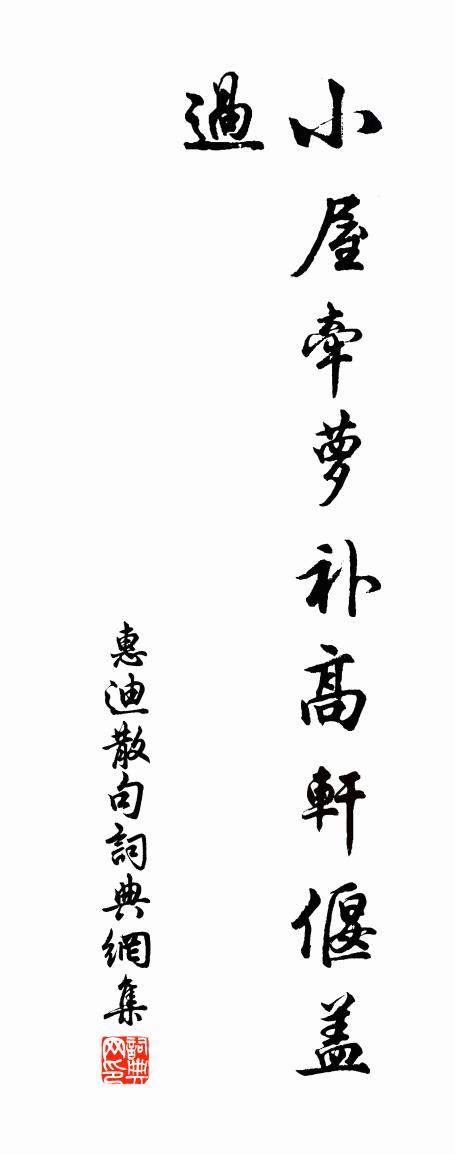 小屋牵萝补高軒偃盖
過
惠迪散句詞典網集
詞典
网印